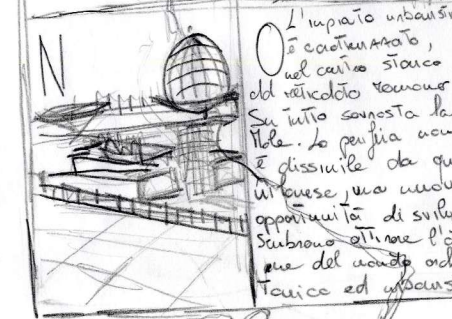 N
L'impiato urbanis
O è caotimizzato,
nel centro storico
dal reticolato romano
Su tutto sovrasta la
Mole. La periferia non
è dissimile da qu
milanese, ma nuov
opportunità di svilu
Sembrano attirare l'a
del mondo
Tonica ed urbanis